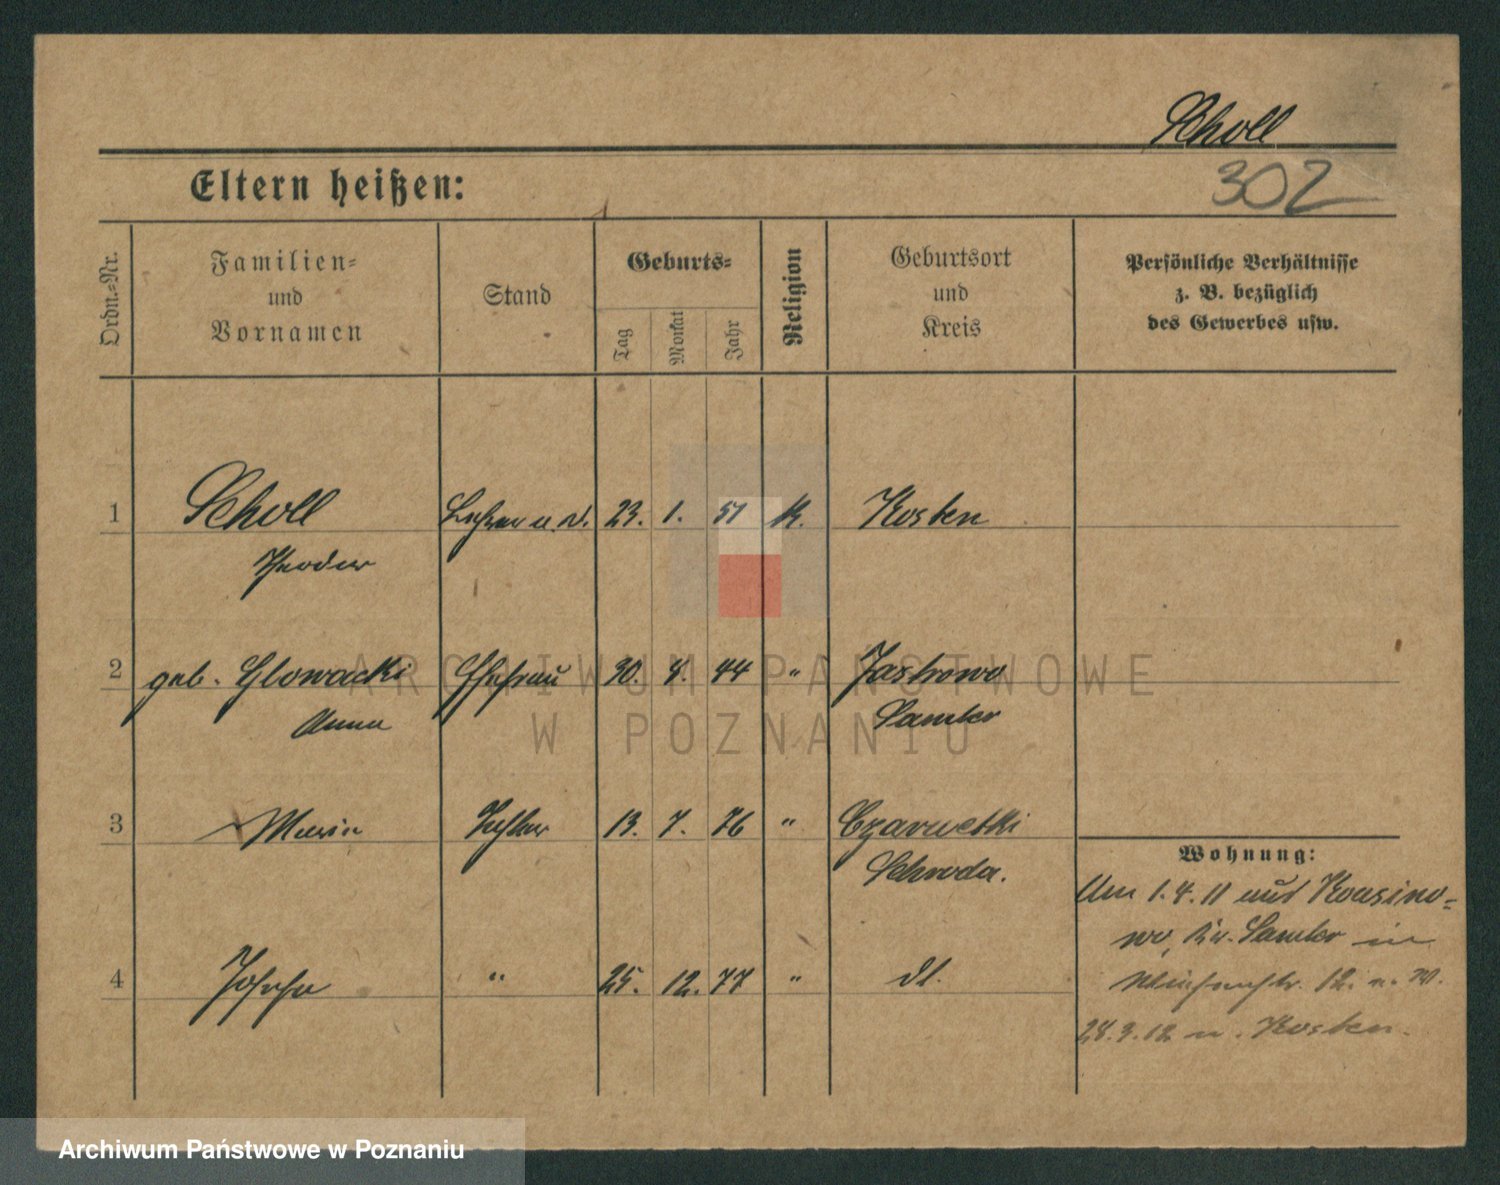 Scholl
302
Eltern heißen:
Ordn.-Nr.
Familien-
und
Vornamen
Stand
Geburts-
Tag
Monat
Jahr
Religion
Geburtsort
und
Kreis
Persönliche Verhältnisse
z. B. bezüglich
des Gewerbes usw.
1 Scholl Lehrer a. D. 23. 1. 51 k. Kosten
Theodor
2 geb. Glowacki Ehefrau 30. 4. 44 " Jastrowo
Anna Samter
3 Maria Tochter 13. 7. 76 " Czarwetki
Schroda.
Wohnung:
Am 1. 4. 11 aus Kowsino-
wo, Kr. Samter in
4 Josefa " 25. 12. 77 " dt.
12. n. W.
28. 3. 12 n. Kosten.
ARCHIWUM PAŃSTWOWE
W POZNANIU
Archiwum Państwowe w Poznaniu